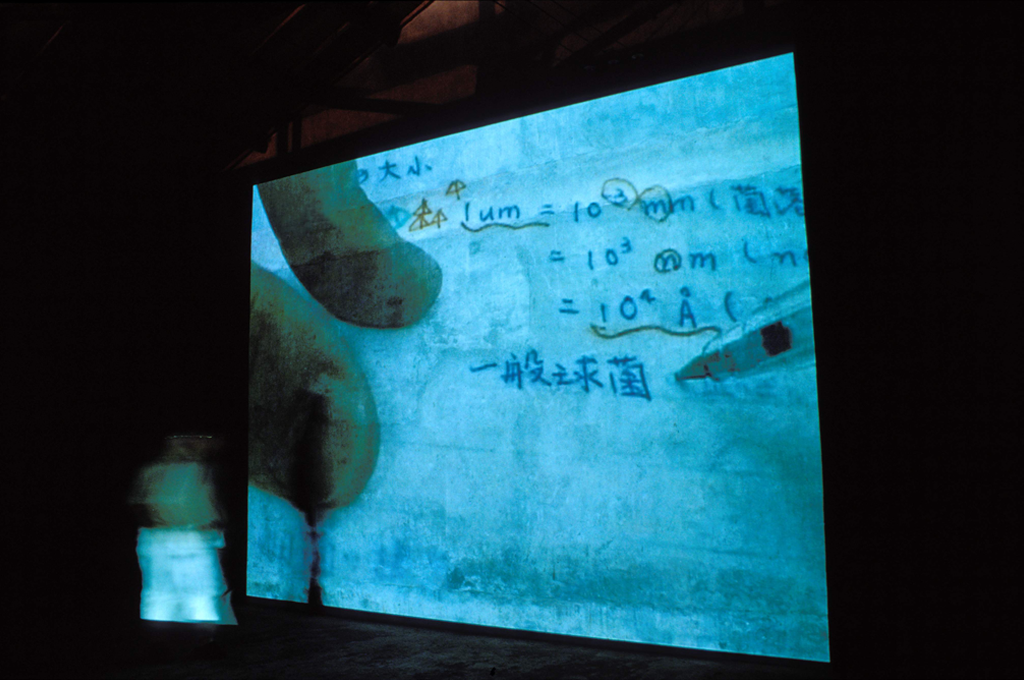 大小
1um = 10⁻³ mm (菌落
= 10³ nm (n
= 10⁴ Å (
一般球菌